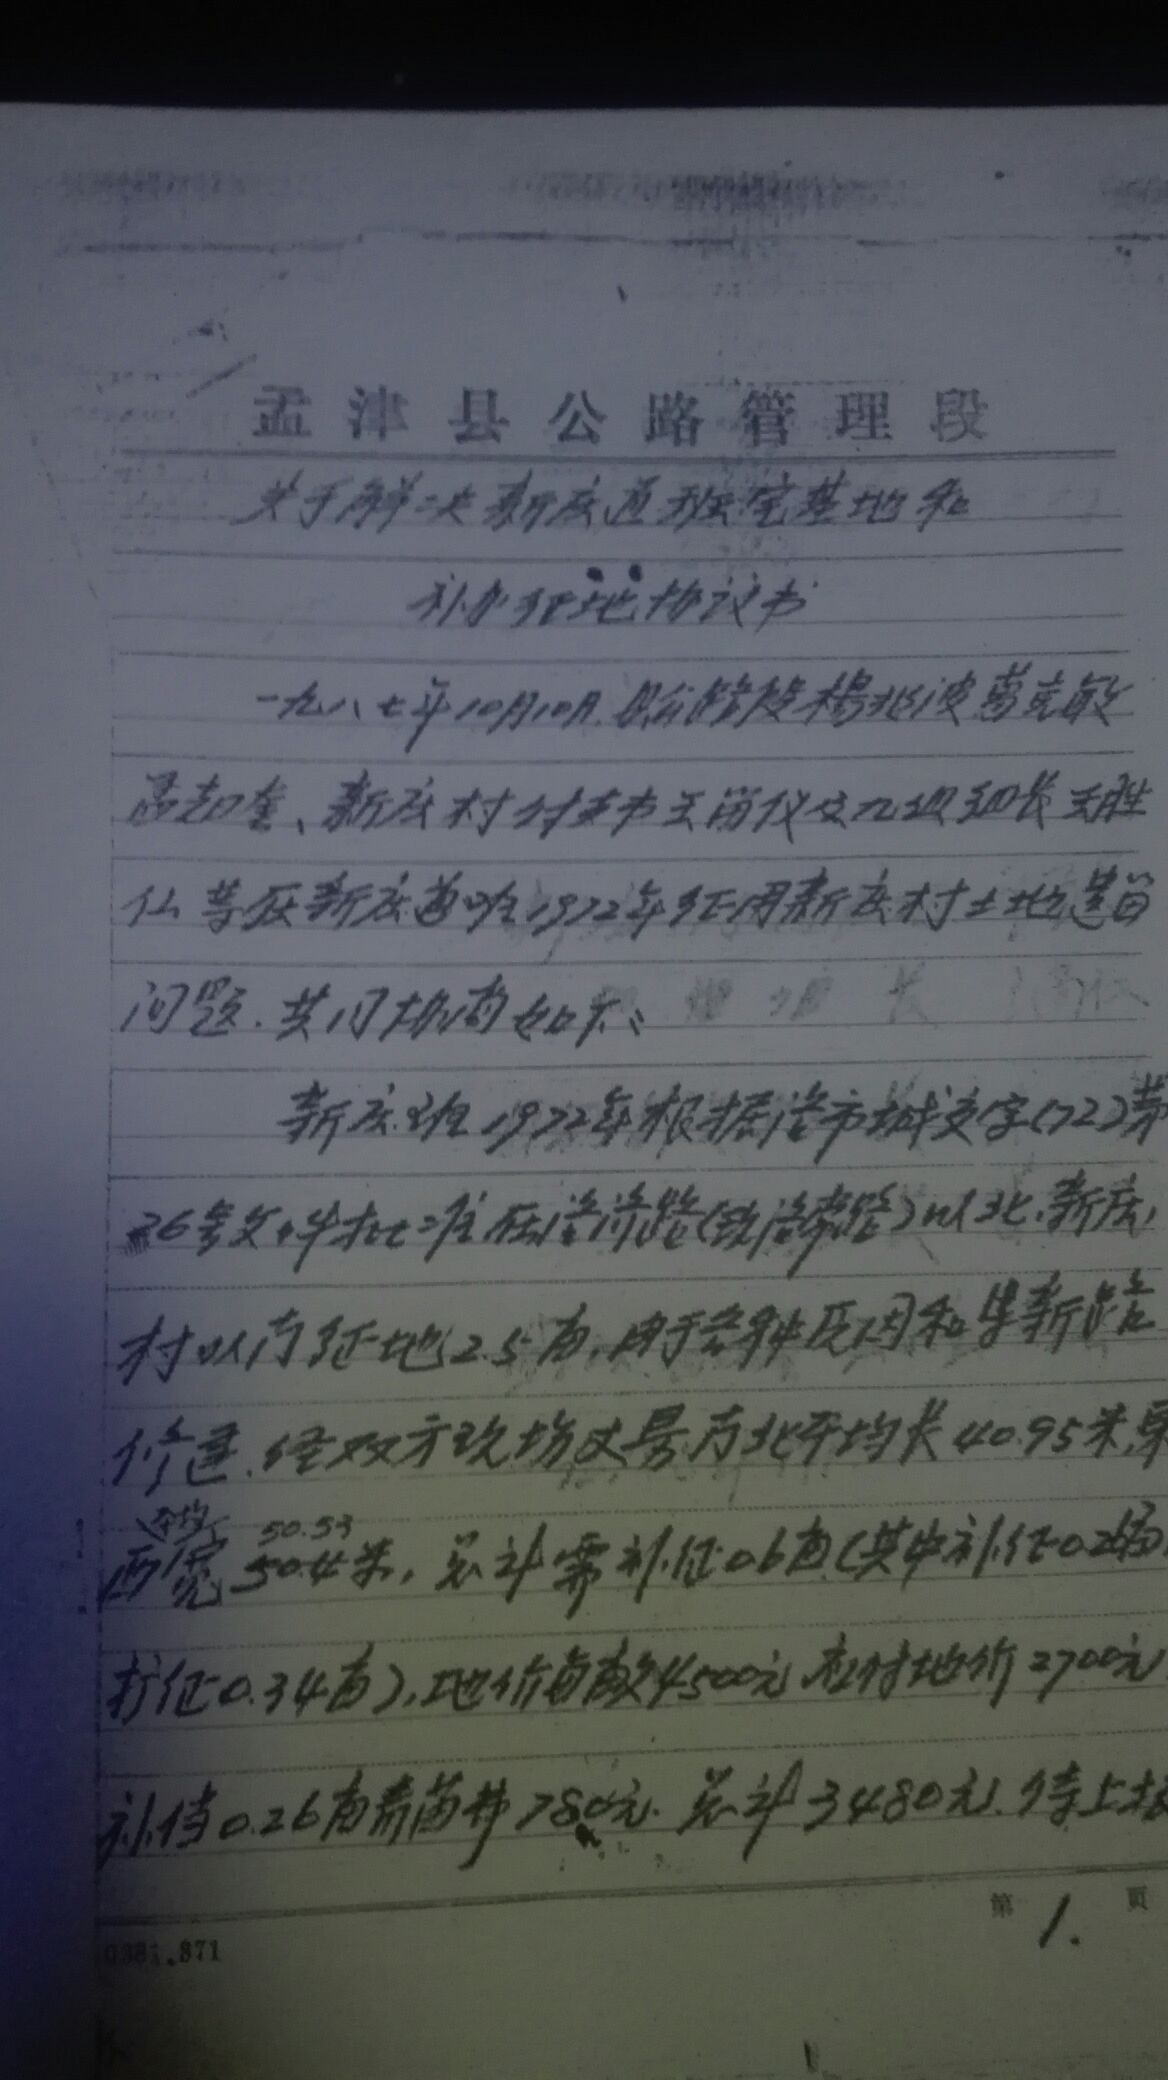 孟津县公路管理段
关于解决新庄道班宅基地和
补办征地协议书
一九八七年10月10日.县公路段杨兆波葛克敏
孟起奎、新庄村付支书王苗仪及九组组长王胜
仏等在新庄道班1972年征用新庄村土地遗留
问题.共同协商如下:
新庄班1972年根据洛市城交字(72)第
36号文件批准在洛济路(洛常路)以北.新庄
村以南征地2.5亩,由于各种原因和集新路
修建.经双方现场丈量南北平均长40.95米,东
平均 50.53
西宽50.4米,总计需补征0.6亩(其中补征0.26亩,
扩征0.34亩),地价每亩4500元应付地价2700元
补偿0.26亩青苗费780元.总计3480元.待上报
第1.页
.871